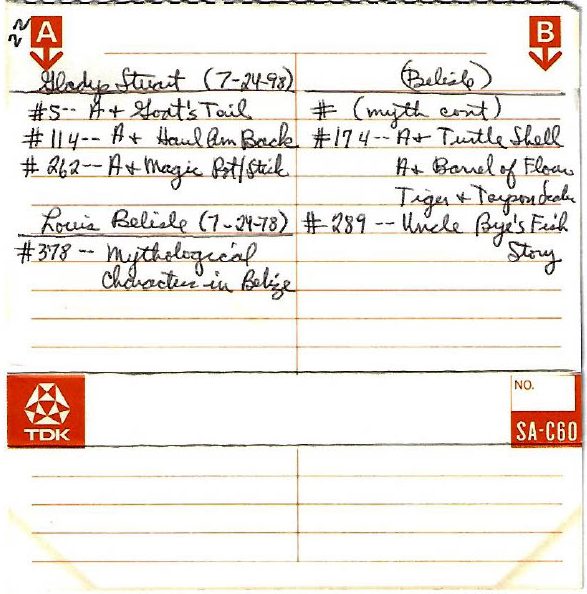 A
B
Gladys Stuart (7-24-98)
#5-- A + Goat's Tail
#114-- A + Haul Am Back
#262-- A + Magic Pot/Stick
Louis Belisle (7-24-78)
#378 -- Mythological
Characters in Belize
(Belisle)
# (myth cont)
#174-- A + Turtle Shell
A + Barrel of Flour
Tiger + Tarpon Scale
#289 -- Uncle Bye's Fish
Story
TDK
NO.
SA-C60